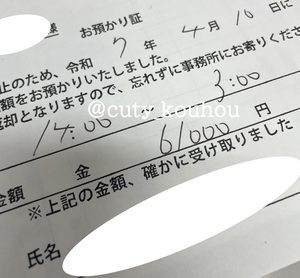 様 お預かり証
止のため、令和 7 年 4 月 10 日に
額をお預かりいたしました。
却となりますので、忘れずに事務所にお寄りくださ
14:00 3:00
@cuty_kouhou
金額 金 61000 円
※上記の金額、確かに受け取りました
氏名